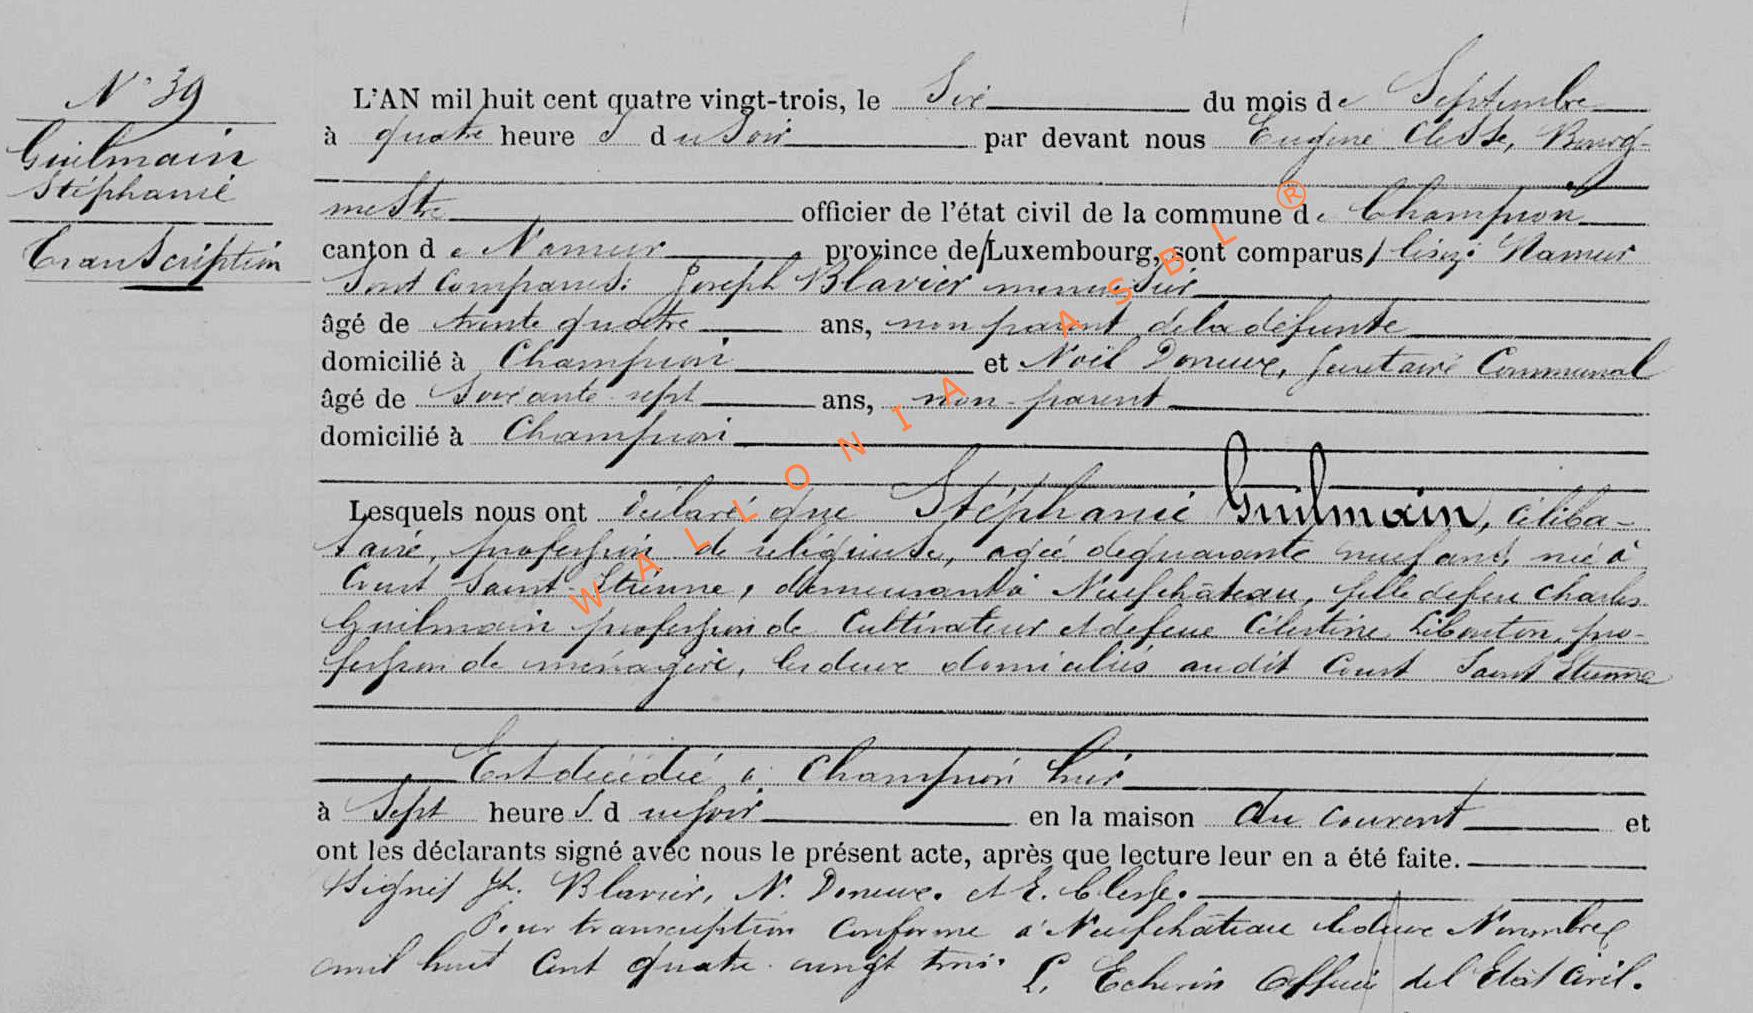 N° 39
Guilmain
Stéphanie
Transcription
L'AN mil huit cent quatre vingt-trois, le Six du mois de Septembre
à quatre heures du Soir par devant nous Eugène Clesse, Bourg-
mestre officier de l'état civil de la commune de Champion
canton de Namur province de/Luxembourg, sont comparus/ lisez: Namur
Sont comparus: Joseph Blavier menuisier
âgé de trente quatre ans, non parent de la défunte
domicilié à Champion et Noël Doneux, Secrétaire Communal
âgé de soixante-sept ans, non-parent
domicilié à Champion
Lesquels nous ont déclaré que Stéphanie Guilmain, céliba-
taire, profession de religieuse, agée de quarante neuf ans, née à
Court Saint-Etienne, demeurant à Neufchâteau, fille de feu Charles
Guilmain profession de Cultivateur et de feue Célestine Libouton, pro-
fession de ménagère, les deux domiciliés audit Court Saint Etienne
Est décédée à Champion hier
à Sept heures du soir en la maison du couvent et
ont les déclarants signé avec nous le présent acte, après que lecture leur en a été faite.
Signés Jh. Blavier, N. Doneux. et E. Clesse.
Pour transcription conforme à Neufchâteau le deux Novembre
mil huit cent quatre-vingt trois. L'Echevin Officier de l'Etat Civil.
WALLONIA ASBL ®